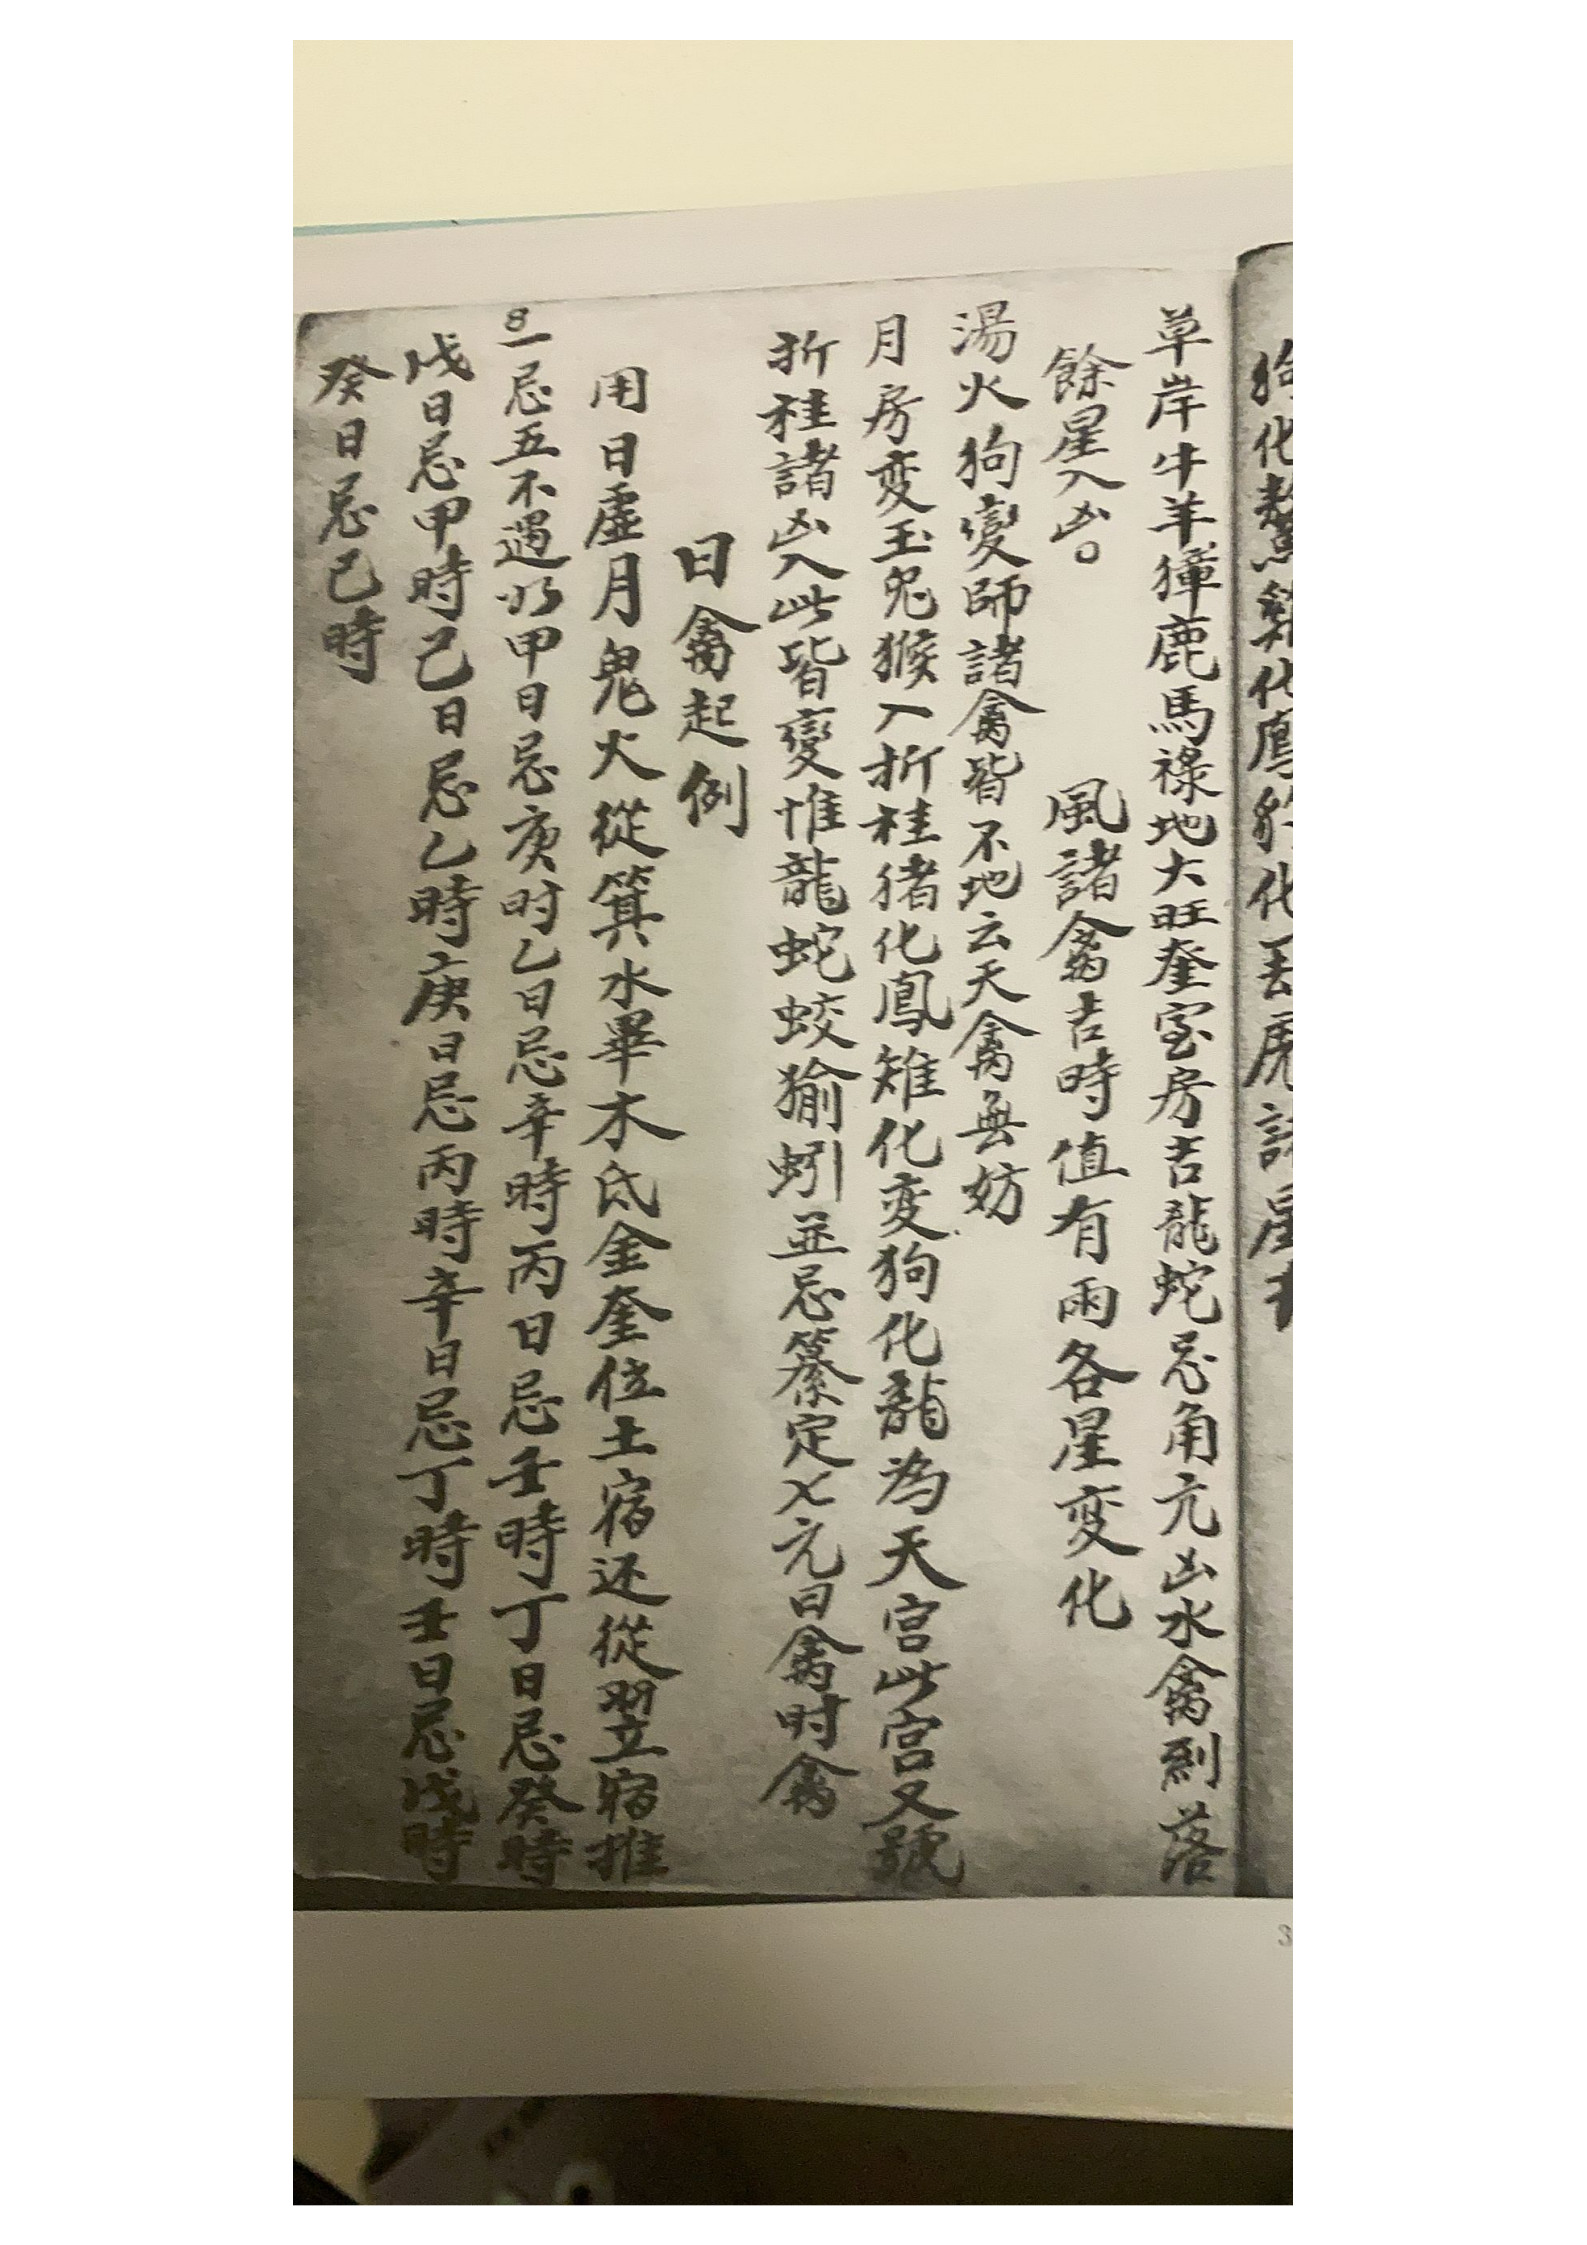 狗化鰲雞化鳳豹化
草岸牛羊獐鹿馬祿地大旺奎室房吉龍蛇忌角亢凶水禽到落
餘星入凶。 風諸禽吉時值有雨各星变化
湯火狗變師諸禽皆不地云天禽無妨
月房变玉兔猴入折桂猪化鳳雉化变狗化龍為天宫此宫又號
折桂諸凶入此皆變惟龍蛇蛟㺄蚓並忌纂定七元日禽时禽
日禽起例
用日虛月鬼火從箕水畢木氐金奎位土宿还從翌宿推
8
一忌五不遇以甲日忌庚时乙日忌辛時丙日忌壬時丁日忌癸時
戊日忌甲時己日忌乙時庚日忌丙時辛日忌丁時壬日忌戊時
癸日忌己時
3